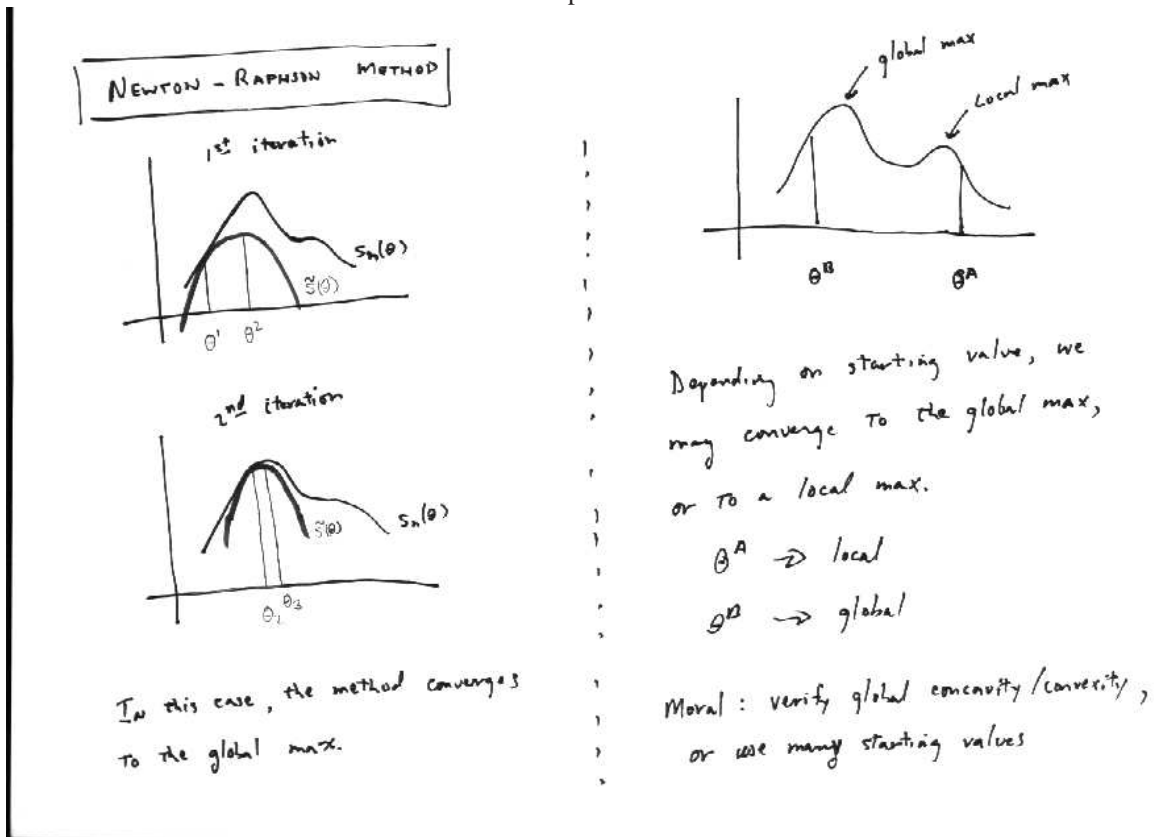 NEWTON - RAPHSON METHOD
1st iteration
Sn(θ)
S̃(θ)
θ¹ θ²
2nd iteration
Sn(θ)
S̃(θ)
θ₂ θ₃
In this case, the method converges
to the global max.
global max
Local max
θᴮ θᴬ
Depending on starting value, we
may converge to the global max,
or to a local max.
θᴬ → local
θᴮ → global
Moral: verify global concavity/convexity,
or use many starting values